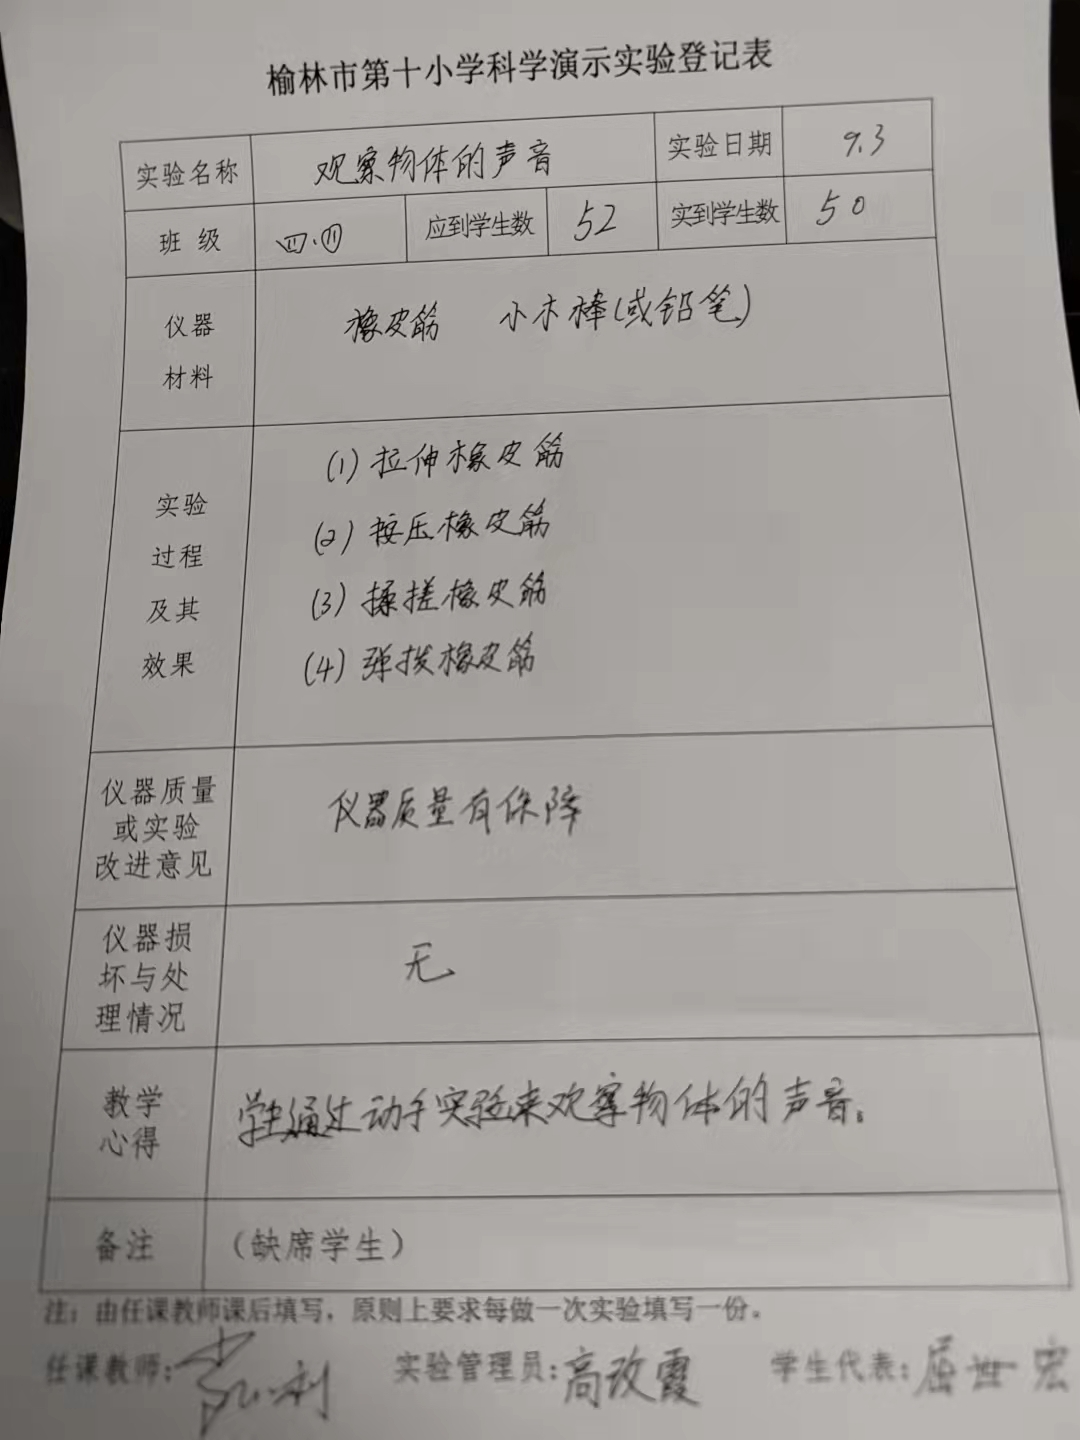 榆林市第十小学科学演示实验登记表
实验名称 观察物体的声音 实验日期 9.3
班级 四.四 应到学生数 52 实到学生数 50
仪器
材料
橡皮筋 小木棒(或铅笔)
实验
过程
及其
效果
(1)拉伸橡皮筋
(2)按压橡皮筋
(3)揉搓橡皮筋
(4)弹拨橡皮筋
仪器质量
或实验
改进意见
仪器质量有保障
仪器损
坏与处
理情况
无
教学
心得
学生通过动手实验来观察物体的声音。
备注 (缺席学生)
注:由任课教师课后填写,原则上要求每做一次实验填写一份。
任课教师: 实验管理员:高改霞 学生代表:屈世宏